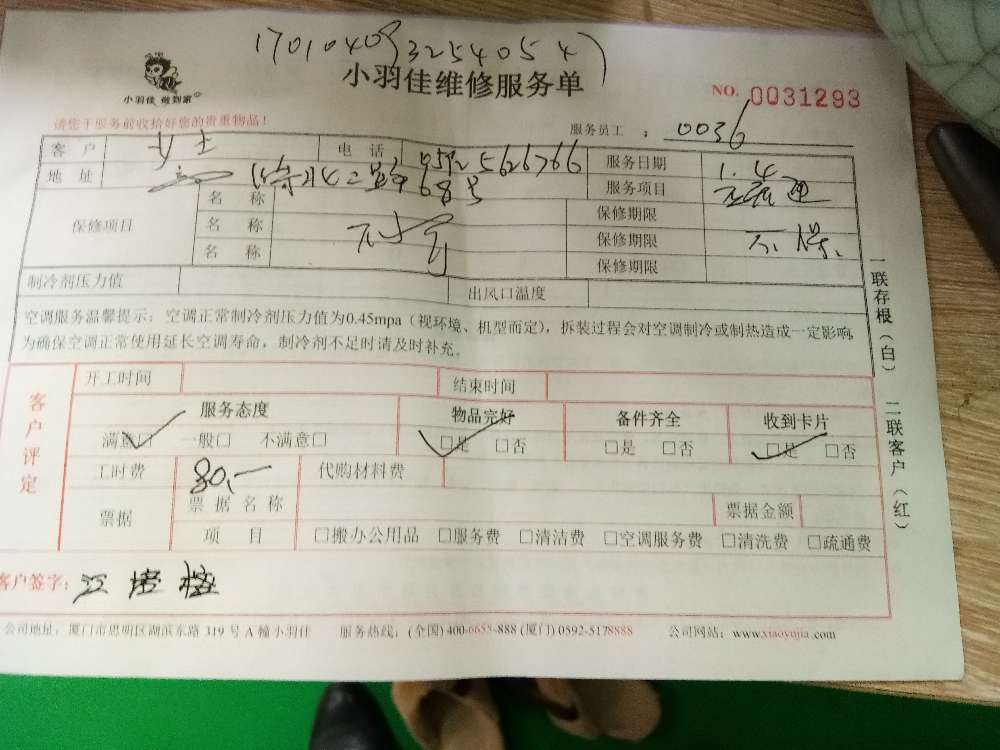 17010409325405 4
小羽佳 做到家
小羽佳维修服务单
NO. 0031293
请您于服务前收拾好您的贵重物品!
服务员工 : 0036
客 户 女士 电 话 0592 5626766 服务日期 1.4
地 址 68号 服务项目
保修项目 名 称 保修期限
名 称 保修期限 不保
名 称 保修期限
制冷剂压力值 出风口温度
空调服务温馨提示: 空调正常制冷剂压力值为0.45mpa(视环境、机型而定), 拆装过程会对空调制冷或制热造成一定影响,
为确保空调正常使用延长空调寿命, 制冷剂不足时请及时补充。
一联存根(白) 二联客户(红)
客户评定
开工时间 结束时间
服务态度 物品完好 备件齐全 收到卡片
满意□ 一般□ 不满意□ □是 □否 □是 □否 □是 □否
工时费 80.- 代购材料费
票据 票据名称 票据金额
项 目 □搬办公用品 □服务费 □清洁费 □空调服务费 □清洗费 □疏通费
客户签字: 江
公司地址: 厦门市思明区湖滨东路 319 号 A 幢小羽佳 服务热线: (全国) 400-6655-888 (厦门) 0592-5178888 公司网站: www.xiaoyujia.com